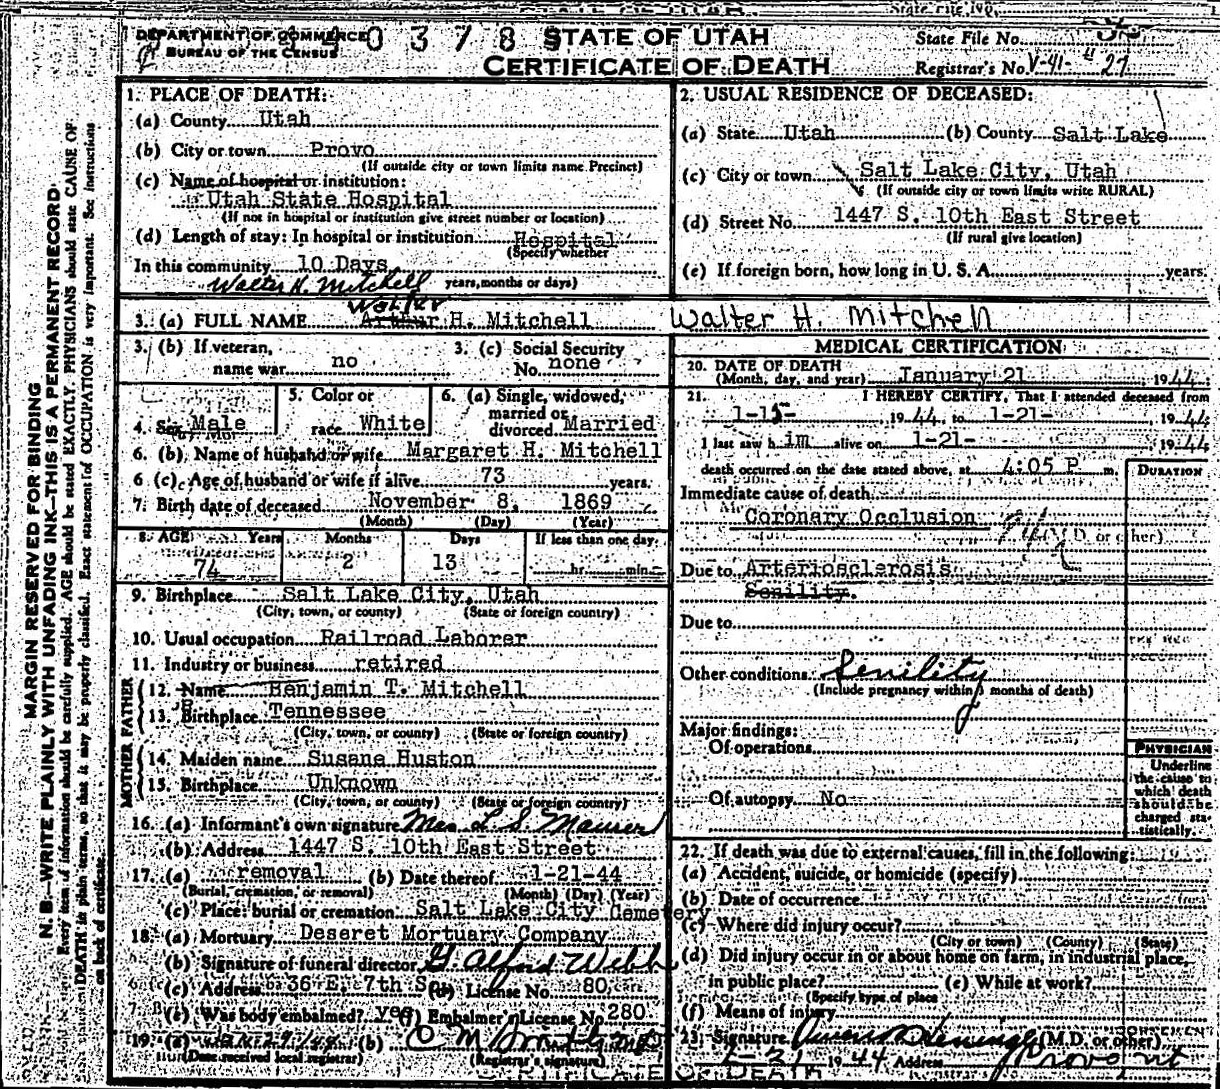 DEPARTMENT OF COMMERCE
BUREAU OF THE CENSUS
0 3 7 8
STATE OF UTAH
CERTIFICATE OF DEATH
State File No.
Registrar's No. V-41- 27
MARGIN RESERVED FOR BINDING
N. B.—WRITE PLAINLY WITH UNFADING INK—THIS IS A PERMANENT RECORD
Every item of information should be carefully supplied. AGE should be stated EXACTLY. PHYSICIANS should state CAUSE OF
DEATH in plain terms, so that it may be properly classified. Exact statement of OCCUPATION is very important. See instructions
on back of certificate.
1. PLACE OF DEATH:
(a) County Utah
(b) City or town Provo
(If outside city or town limits name Precinct)
(c) Name of hospital or institution:
Utah State Hospital
(If not in hospital or institution give street number or location)
(d) Length of stay: In hospital or institution Hospital
(Specify whether
In this community 10 Days
years, months or days)
Walter H. Mitchell
2. USUAL RESIDENCE OF DECEASED:
(a) State Utah (b) County Salt Lake
(c) City or town Salt Lake City, Utah
(If outside city or town limits write RURAL)
(d) Street No. 1447 S. 10th East Street
(If rural give location)
(e) If foreign born, how long in U. S. A. years.
Walter
3. (a) FULL NAME Arthur H. Mitchell Walter H. Mitchell
3. (b) If veteran, name war no
3. (c) Social Security No. none
4. Sex Male
5. Color or race White
6. (a) Single, widowed, married or divorced Married
6. (b) Name of husband or wife Margaret H. Mitchell
6 (c). Age of husband or wife if alive 73 years.
7. Birth date of deceased November 8, 1869
(Month) (Day) (Year)
8. AGE Years Months Days If less than one day
74 2 13 hr. min.
9. Birthplace Salt Lake City, Utah
(City, town, or county) (State or foreign country)
10. Usual occupation Railroad Laborer
11. Industry or business retired
FATHER
12. Name Benjamin T. Mitchell
13. Birthplace Tennessee
(City, town, or county) (State or foreign country)
MOTHER
14. Maiden name Susana Huston
15. Birthplace Unknown
(City, town, or county) (State or foreign country)
16. (a) Informant's own signature Mrs L. S. Maurer
(b) Address 1447 S. 10th East Street
17. (a) removal (b) Date thereof 1-21-44
(Burial, cremation, or removal) (Month) (Day) (Year)
(c) Place: burial or cremation Salt Lake City Cemetery
18. (a) Mortuary Deseret Mortuary Company
(b) Signature of funeral director G. Alford Webb
(c) Address 36 E. 7th So. (d) License No. 80
(e) Was body embalmed? yes (f) Embalmer's License No. 280
19. (a) (b)
(Date received local registrar) (Registrar's signature)
MEDICAL CERTIFICATION
20. DATE OF DEATH
(Month, day, and year) January 21 1944
21. I HEREBY CERTIFY, That I attended deceased from
1-15- 1944, to 1-21- 1944
I last saw him alive on 1-21- 1944
death occurred on the date stated above, at 4:05 P m.
DURATION
Immediate cause of death
Coronary Occlusion
Due to Arteriosclerosis
Senility.
Due to
Other conditions Senility
(Include pregnancy within 3 months of death)
Major findings:
Of operations
Of autopsy No
PHYSICIAN
Underline
the cause to
which death
should be
charged sta-
tistically.
22. If death was due to external causes, fill in the following:
(a) Accident, suicide, or homicide (specify)
(b) Date of occurrence
(c) Where did injury occur?
(City or town) (County) (State)
(d) Did injury occur in or about home on farm, in industrial place,
in public place? (e) While at work?
(Specify type of place
(f) Means of injury
23. Signature (M.D. or other)
1944 Address Provo Ut